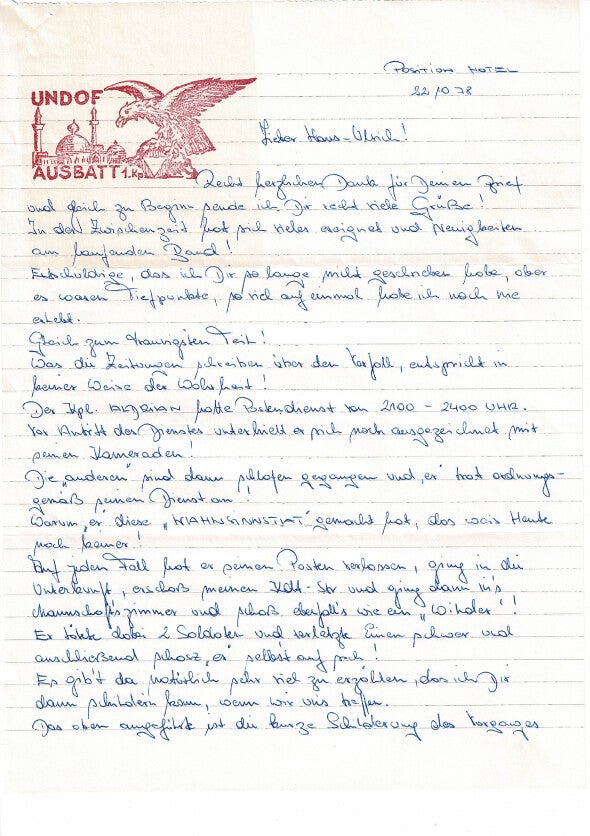 POSITION HOTEL
22/10 78
UNDOF
AUSBATT 1.Kp.
Lieber Hans-Ulrich!
Recht herzlichen Dank für Deinen Brief
und gleich zu Beginn sende ich Dir recht viele Grüße!
In der Zwischenzeit hat sich vieles ereignet und Neuigkeiten
am laufenden Band!
Entschuldige, das ich Dir so lange nicht geschrieben habe, aber
es waren Tiefpunkte, so viel auf einmal habe ich noch nie
erlebt.
Gleich zum traurigsten Teil!
Was die Zeitungen schreiben über den Vorfall, entspricht in
keiner Weise der Wahrheit!
Der Kpl. hatte Postendienst von 2100 - 2400 UHR.
Vor Antritt des Dienstes unterhielt er sich noch ausgezeichnet mit
seinen Kameraden!
Die "anderen" sind dann schlafen gegangen und "er" trat ordnungs-
gemäß seinen Dienst an!
Warum "er" diese "WAHNSINNSTAT" gemacht hat, das weis Heute
noch keiner!
Auf jeden Fall hat er seinen Posten verlassen, ging in die
Unterkunft, erschoß meinen Kdt-Stv und ging dann in's
Mannschaftszimmer und schoß ebenfalls wie ein "Wilder"!
Er tötete dabei 2 Soldaten und verletzte Einen schwer und
anschließend schosz "er" selbst auf sich!
Es gib't da natürlich sehr viel zu erzählen, das ich Dir
dann schildern kann, wenn wir uns treffen.
Das oben angeführte ist die kurze Schilderung des Vorganges